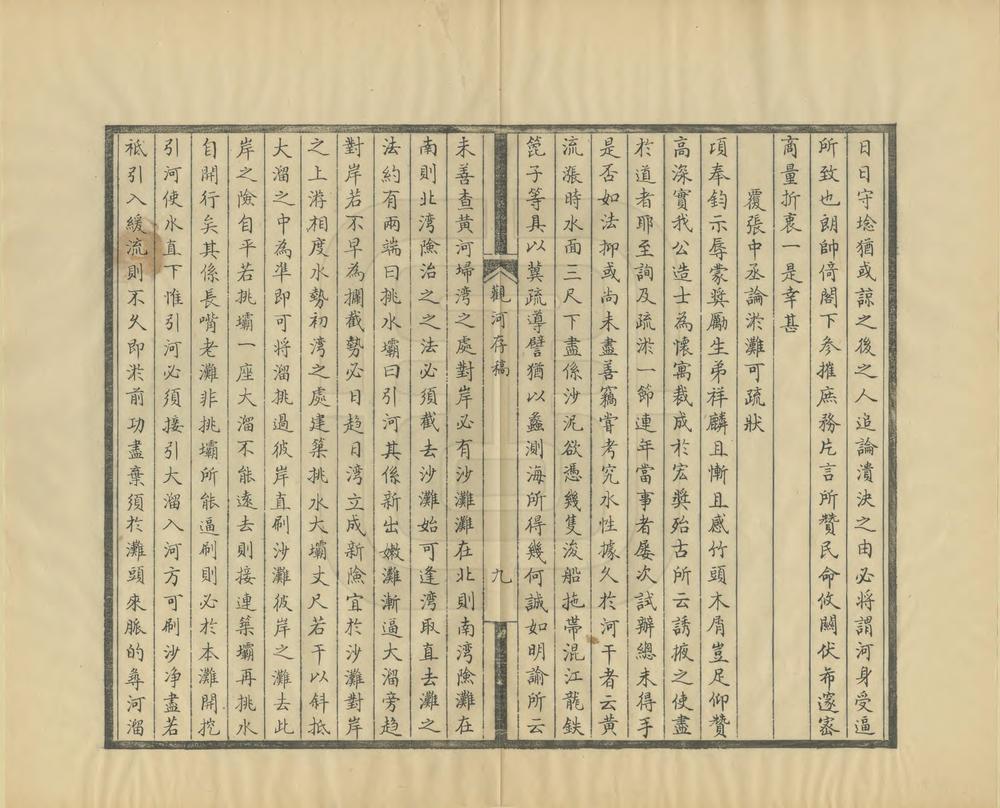 日日守埝猶或諒之後之人追論潰決之由必將謂河身受逼
所致也朗帥倚閣下參推庶務片言所贊民命攸關伏希邃密
商量折衷一是幸甚
覆張中丞論淤灘可疏狀
項奉鈞示辱蒙奬勵生弟祥麟且慚且感竹頭木屑豈足仰贊
高深實我公造士為懷寓裁成於宏奬殆古所云誘掖之使盡
於道者耶至詢及疏淤一節連年當事者屢次試辦總未得手
是否如法抑或尚未盡善竊嘗考究水性據久於河干者云黄
流漲時水面三尺下盡係沙泥欲憑幾隻浚船拖帶混江龍鉄
篦子等具以冀疏導譬猶以蠡測海所得幾何誠如明諭所云
觀河存稿
九
未善查黄河埽湾之處對岸必有沙灘灘在北則南湾險灘在
南則北湾險治之之法必須截去沙灘始可逢湾取直去灘之
法約有兩端曰挑水壩曰引河其係新出嫩灘漸逼大溜旁趋
對岸若不早為攔截勢必日趋日湾立成新險宜於沙灘對岸
之上游相度水勢初湾之處建築挑水大壩丈尺若干以斜抵
大溜之中為準即可將溜挑過彼岸直刷沙灘彼岸之灘去此
岸之險自平若挑壩一座大溜不能遠去則接連築壩再挑水
自開行矣其係長嘴老灘非挑壩所能逼刷則必於本灘開挖
引河使水直下惟引河必須接引大溜入河方可刷沙净盡若
祇引入緩流則不久即淤前功盡棄須於灘頭來脈的尋河溜